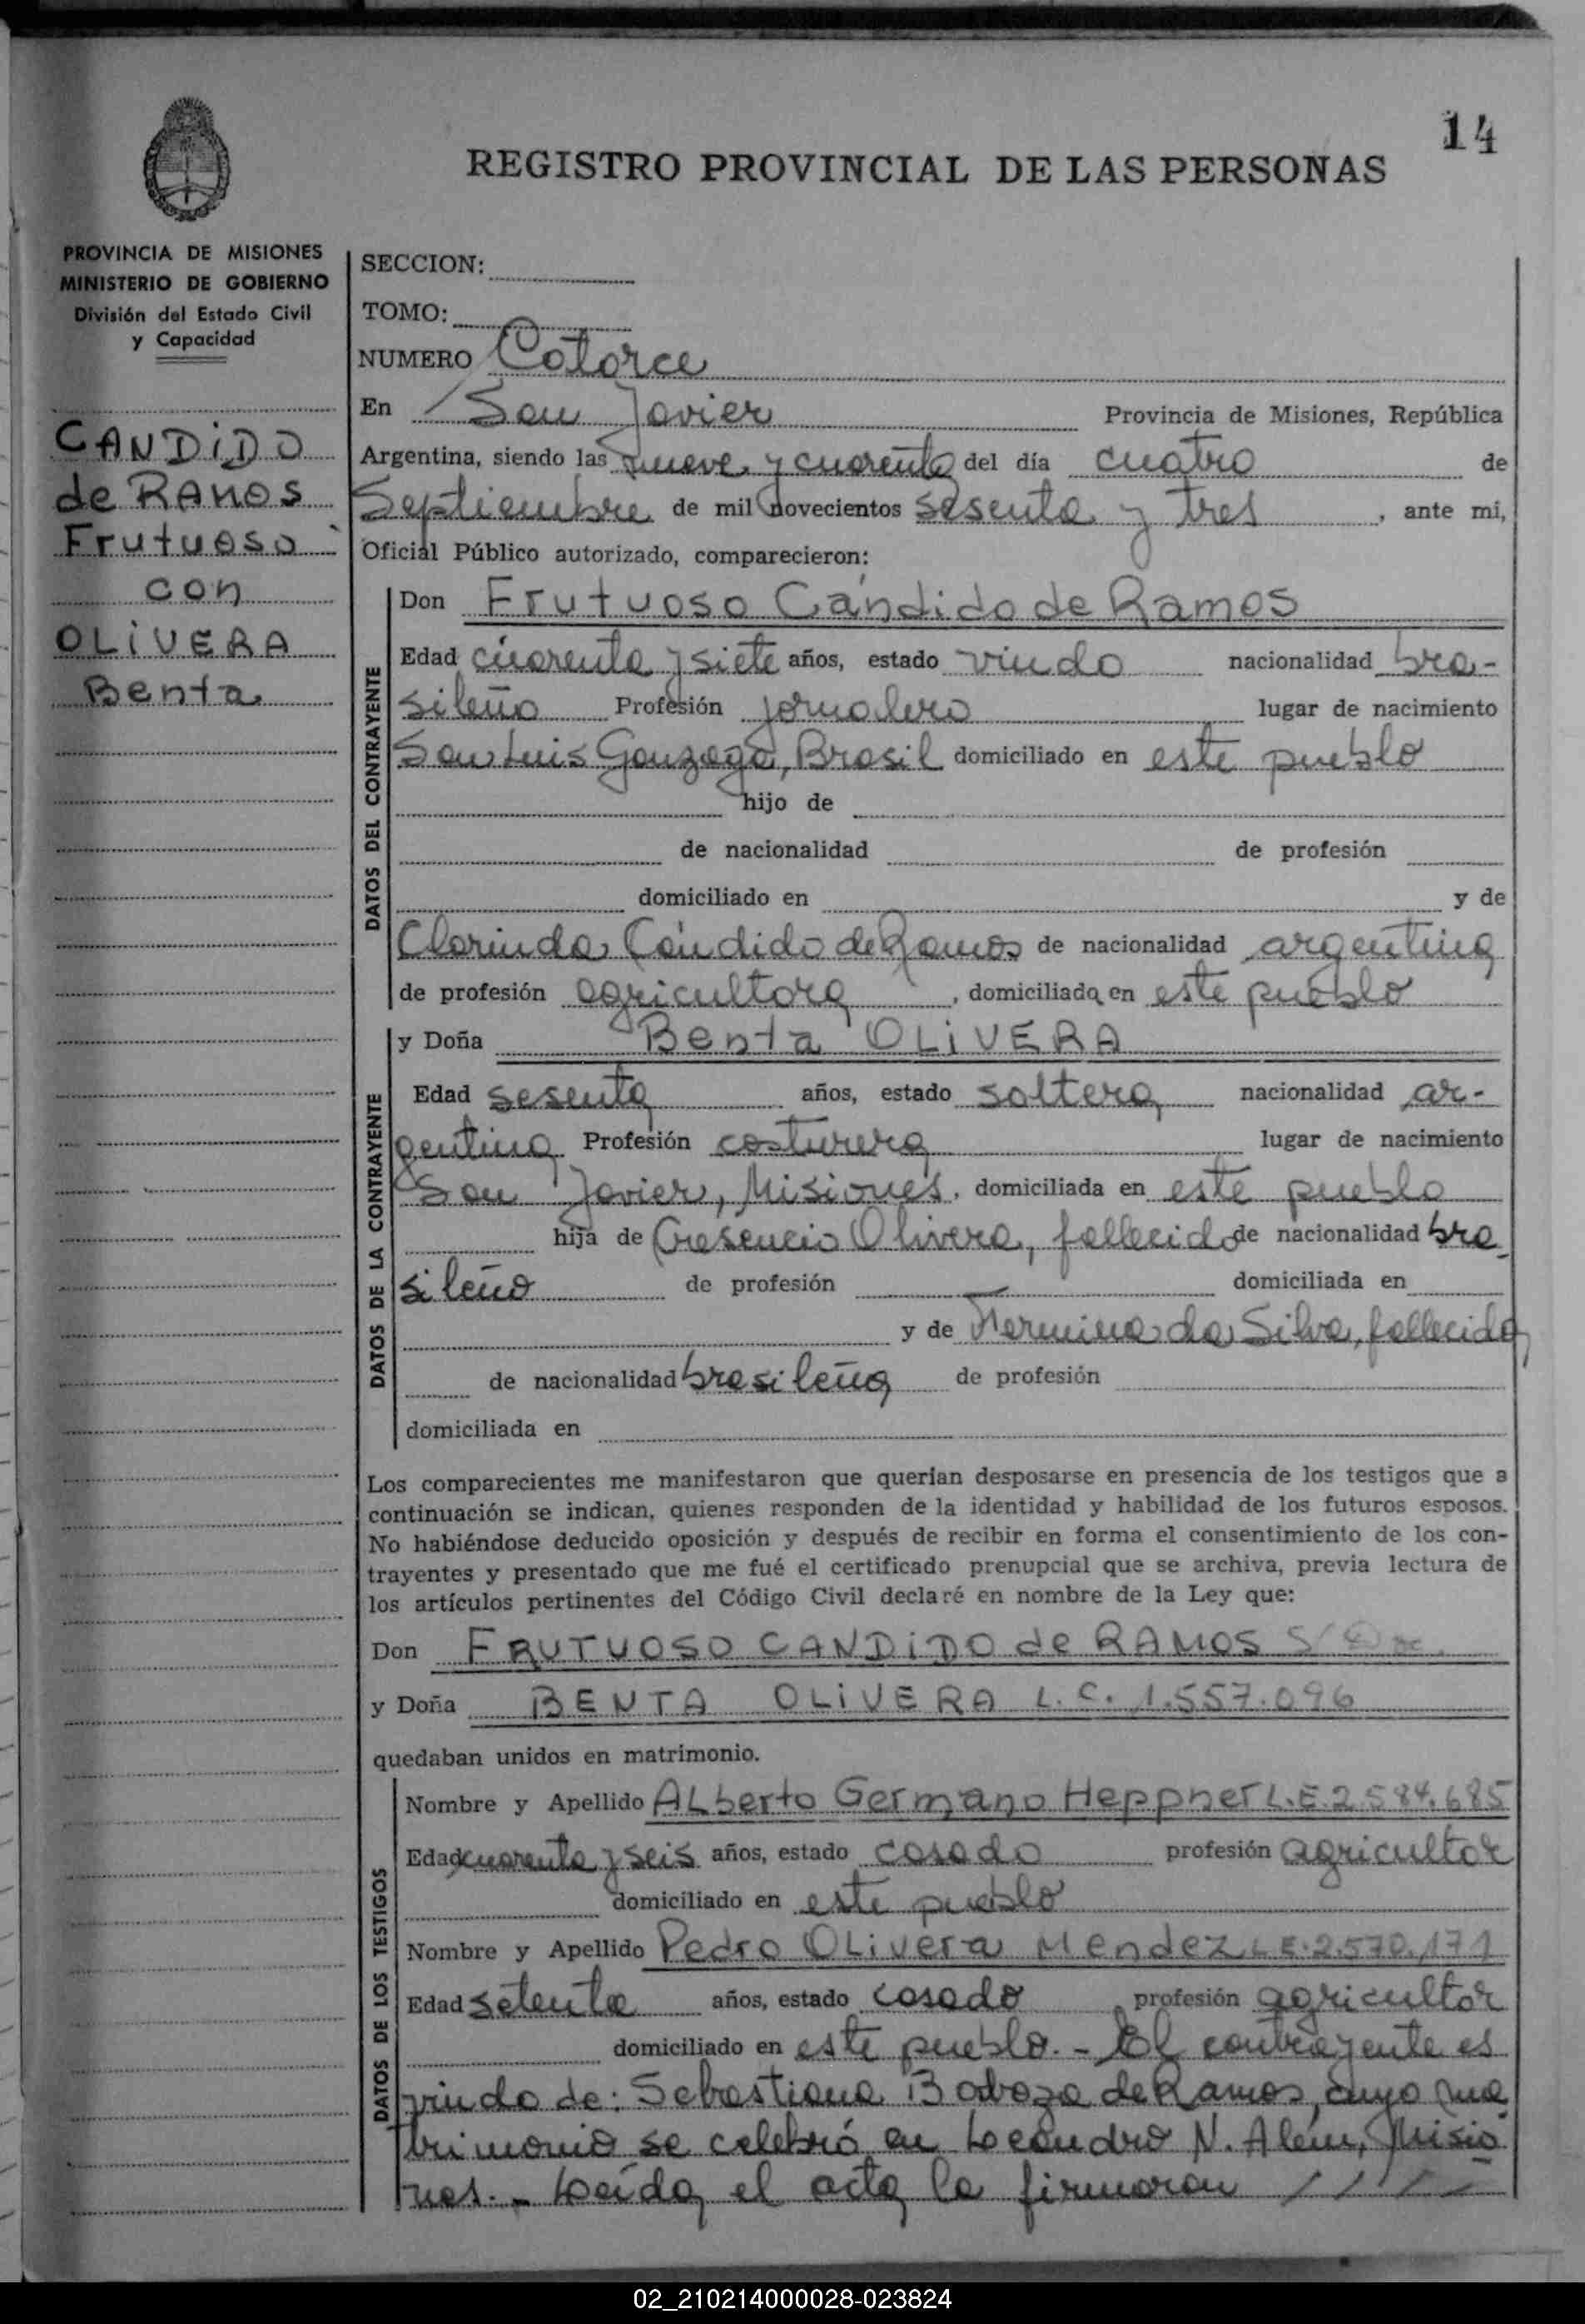 14
REGISTRO PROVINCIAL DE LAS PERSONAS
PROVINCIA DE MISIONES
MINISTERIO DE GOBIERNO
División del Estado Civil
y Capacidad
CANDIDO
de RAMOS
Frutuoso
con
OLIVERA
Benta
SECCION:
TOMO:
NUMERO Catorce
En San Javier Provincia de Misiones, República
Argentina, siendo las nueve y cuarenta del día cuatro de
Septiembre de mil novecientos sesenta y tres, ante mi,
Oficial Público autorizado, comparecieron:
DATOS DEL CONTRAYENTE
Don Frutuoso Cándido de Ramos
Edad cuarenta y siete años, estado viudo nacionalidad bra-
sileño Profesión jornalero lugar de nacimiento
San Luis Gonzaga, Brasil domiciliado en este pueblo
hijo de
de nacionalidad de profesión
domiciliado en y de
Clorinda Cándido de Ramos de nacionalidad argentina
de profesión agricultora, domiciliada en este pueblo
DATOS DE LA CONTRAYENTE
y Doña Benta OLIVERA
Edad sesenta años, estado soltera nacionalidad ar-
gentina Profesión costurera lugar de nacimiento
San Javier, Misiones, domiciliada en este pueblo
hija de Cresencio Olivera, fallecido de nacionalidad bra-
sileño de profesión domiciliada en
y de Hermina da Silva, fallecida
de nacionalidad brasileña de profesión
domiciliada en
Los comparecientes me manifestaron que querían desposarse en presencia de los testigos que a
continuación se indican, quienes responden de la identidad y habilidad de los futuros esposos.
No habiéndose deducido oposición y después de recibir en forma el consentimiento de los con-
trayentes y presentado que me fué el certificado prenupcial que se archiva, previa lectura de
los artículos pertinentes del Código Civil declaré en nombre de la Ley que:
Don FRUTUOSO CANDIDO de RAMOS
y Doña BENTA OLIVERA L.C. 1.557.096
quedaban unidos en matrimonio.
DATOS DE LOS TESTIGOS
Nombre y Apellido Alberto Germano Heppner L.E. 2.584.685
Edad cuarenta y seis años, estado casado profesión agricultor
domiciliado en este pueblo
Nombre y Apellido Pedro Olivera Mendez L.E. 2.570.171
Edad setenta años, estado casado profesión agricultor
domiciliado en este pueblo.- El contrayente es
viudo de: Sebastiana de Ramos, cuyo ma
trimonio se celebró en Leandro N. Alem, Misio
nes.- Leída el acta la firmaron ////
02_210214000028-023824